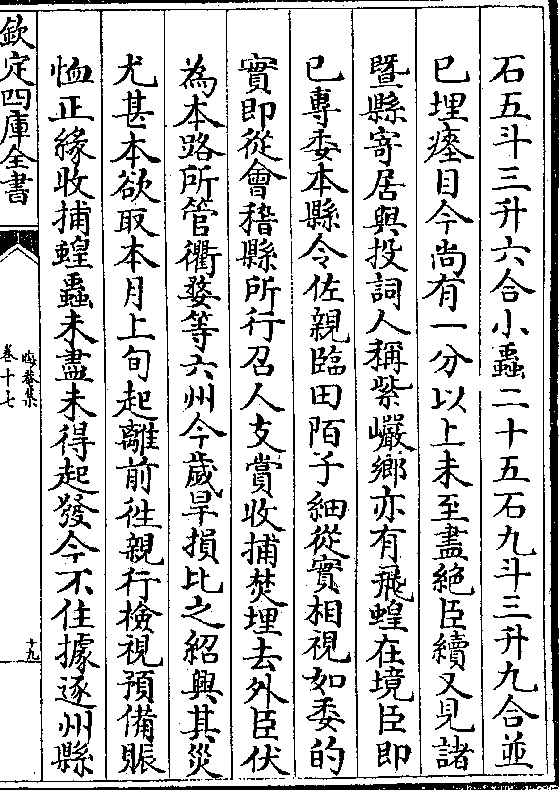 石五斗三升六合小蟲二十五石九斗三升九合並
已埋瘞目今尚有一分以上未至盡絶臣續又見諸
暨縣寄居與投詞人稱紫巖鄉亦有飛蝗在境臣即
已專委本縣令佐親臨田陌子細從實相視如委的
實即從會稽縣所行召人支賞收捕焚埋去外臣伏
為本路所管衢婺等六州今歲旱損比之紹興其災
尤甚本欲取本月上旬起離前徃親行檢視預備賑
恤正緣收捕蝗蟲未盡未得起發今不住據逐州縣
欽定四庫全書
晦菴集
卷十七
十九